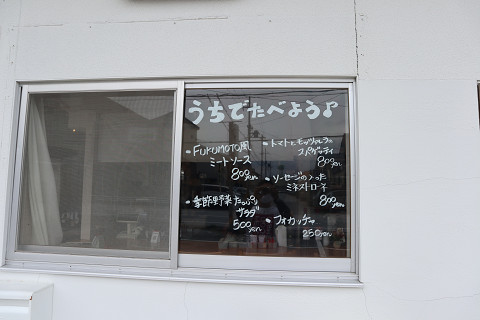 うちでたべよう♪
・FUKUMOTO風
ミートソース
800yen
・季節野菜たっぷり
サラダ
500yen
・トマトとモッツァレラの
スパゲッティ
800yen
・ソーセージの入った
ミネストローネ
800yen
・フォカッチャ
250yen